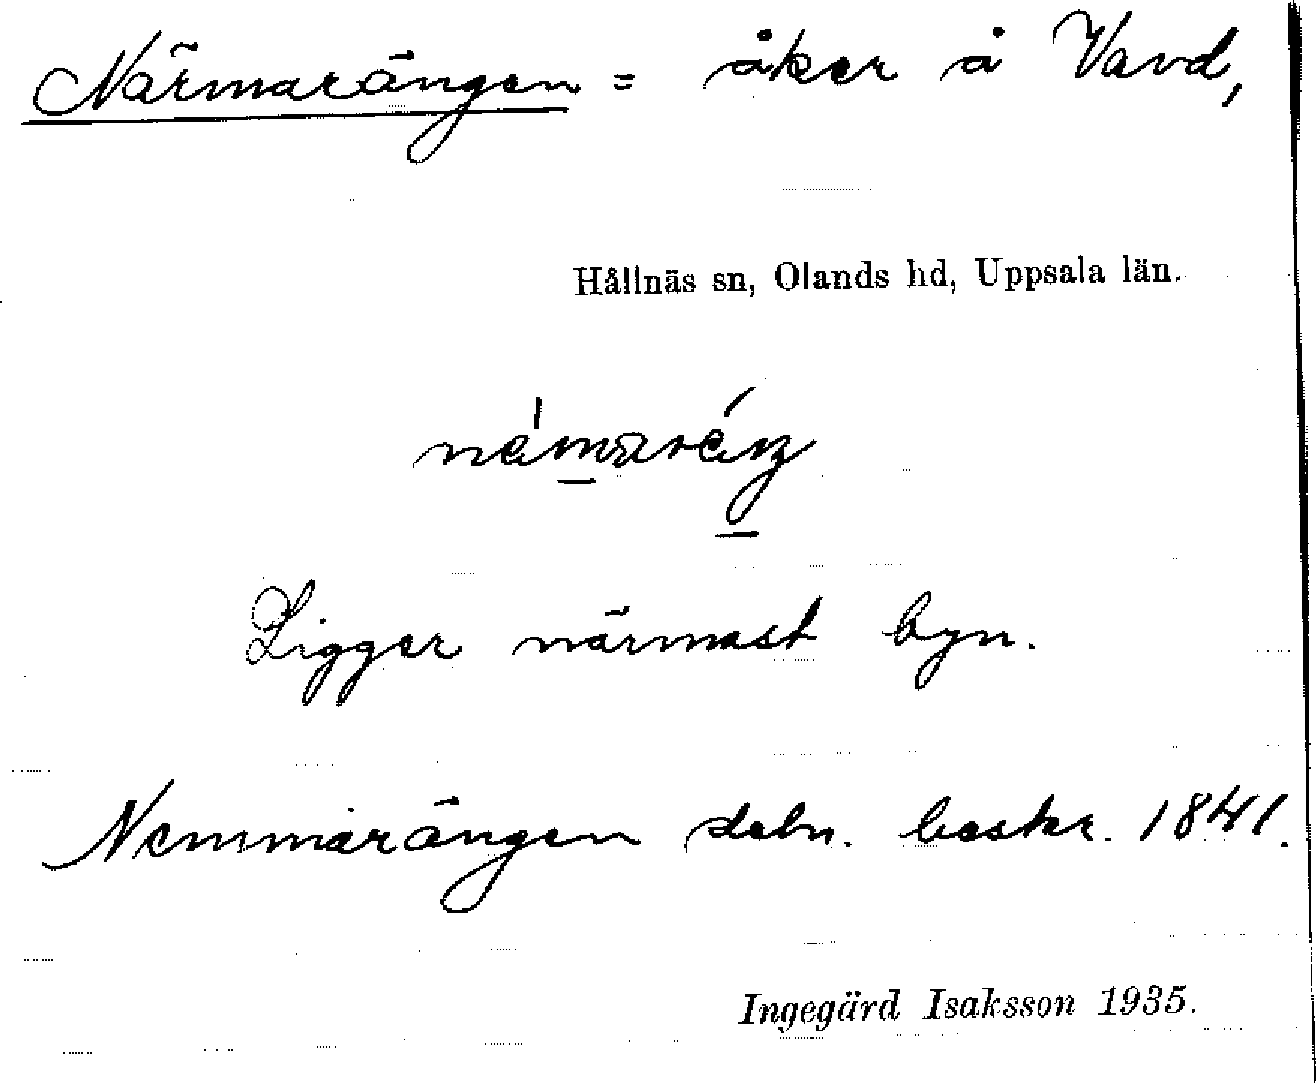 Närmarängen = åker å Vavd,
Hållnäs sn, Olands hd, Uppsala län.
Ligger närmast byn.
Nemmarängen debn. beskr. 1841.
Ingegärd Isaksson 1935.